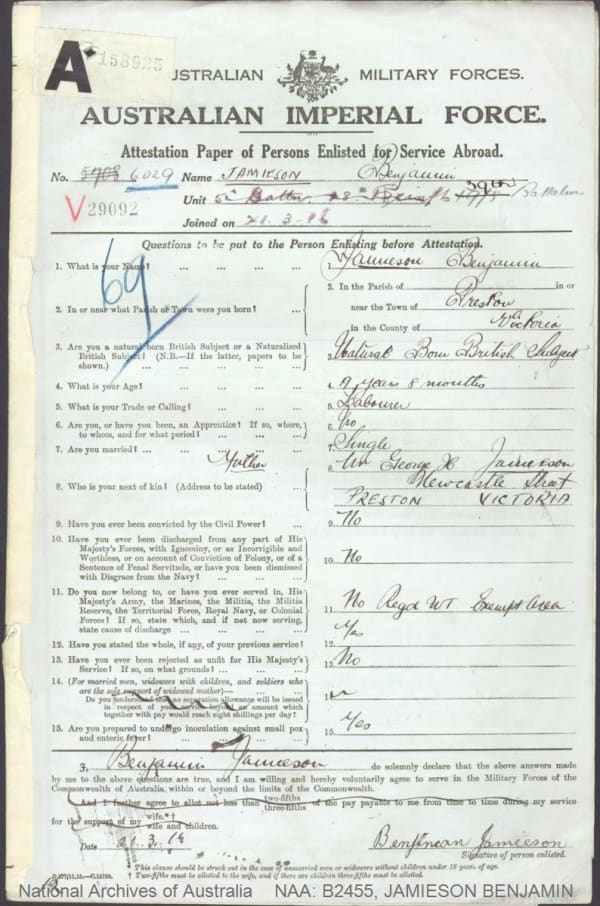 A 158925
AUSTRALIAN MILITARY FORCES.
AUSTRALIAN IMPERIAL FORCE.
Attestation Paper of Persons Enlisted for Service Abroad.
No. 6029 Name JAMIESON Benjamin
Unit Battalion
V 29092
Joined on 21.3.16
Questions to be put to the Person Enlisting before Attestation.
69
1. What is your Name? ... ... ... ... 1. Jamieson Benjamin
2. In or near what Parish or Town were you born? ... 2. In the Parish of in or
near the Town of Preston
in the County of Victoria
3. Are you a natural born British Subject or a Naturalized
British Subject? (N.B.—If the latter, papers to be
shown.) ... ... ... ... 3. Natural Born British Subject
4. What is your Age? ... ... ... ... 4. years 8 months
5. What is your Trade or Calling? ... ... ... 5. Labourer
6. Are you, or have you been, an Apprentice? If so, where,
to whom, and for what period? ... ... ... 6. No
7. Are you married? ... ... ... ... 7. Single
Father
8. Who is your next of kin? (Address to be stated) ... 8. Mr George H Jamieson
Newcastle Street
PRESTON VICTORIA
9. Have you ever been convicted by the Civil Power? ... 9. No
10. Have you ever been discharged from any part of His
Majesty's Forces, with Ignominy, or as Incorrigible and
Worthless, or on account of Conviction of Felony, or of a
Sentence of Penal Servitude, or have you been dismissed
with Disgrace from the Navy? ... ... ... 10. No
11. Do you now belong to, or have you ever served in, His
Majesty's Army, the Marines, the Militia, the Militia
Reserve, the Territorial Force, Royal Navy, or Colonial
Forces? If so, state which, and if not now serving,
state cause of discharge ... ... ... ... 11. No Regd WT Exempt Area
12. Have you stated the whole, if any, of your previous service? 12. Yes
13. Have you ever been rejected as unfit for His Majesty's
Service? If so, on what grounds? ... ... ... 13. No
14. (For married men, widowers with children, and soldiers who
are the sole support of widowed mother)—
Do you understand that no separation allowance will be issued
in respect of your service beyond an amount which
together with pay would reach eight shillings per day? 14.
15. Are you prepared to undergo inoculation against small pox
and enteric fever? ... ... ... ... 15. Yes
I, Benjamin Jamieson do solemnly declare that the above answers made
by me to the above questions are true, and I am willing and hereby voluntarily agree to serve in the Military Forces of the
Commonwealth of Australia, within or beyond the limits of the Commonwealth.
And I further agree to allot not less than two-fifths three-fifths of the pay payable to me from time to time during my service
for the support of my wife.*† wife and children.
Date 21.3.16
Benjamin Jamieson
Signature of person enlisted.
* This clause should be struck out in the case of unmarried men or widowers without children under 18 years of age.
† Two-fifths must be allotted to the wife, and if there are children three-fifths must be allotted.
National Archives of Australia NAA: B2455, JAMIESON BENJAMIN